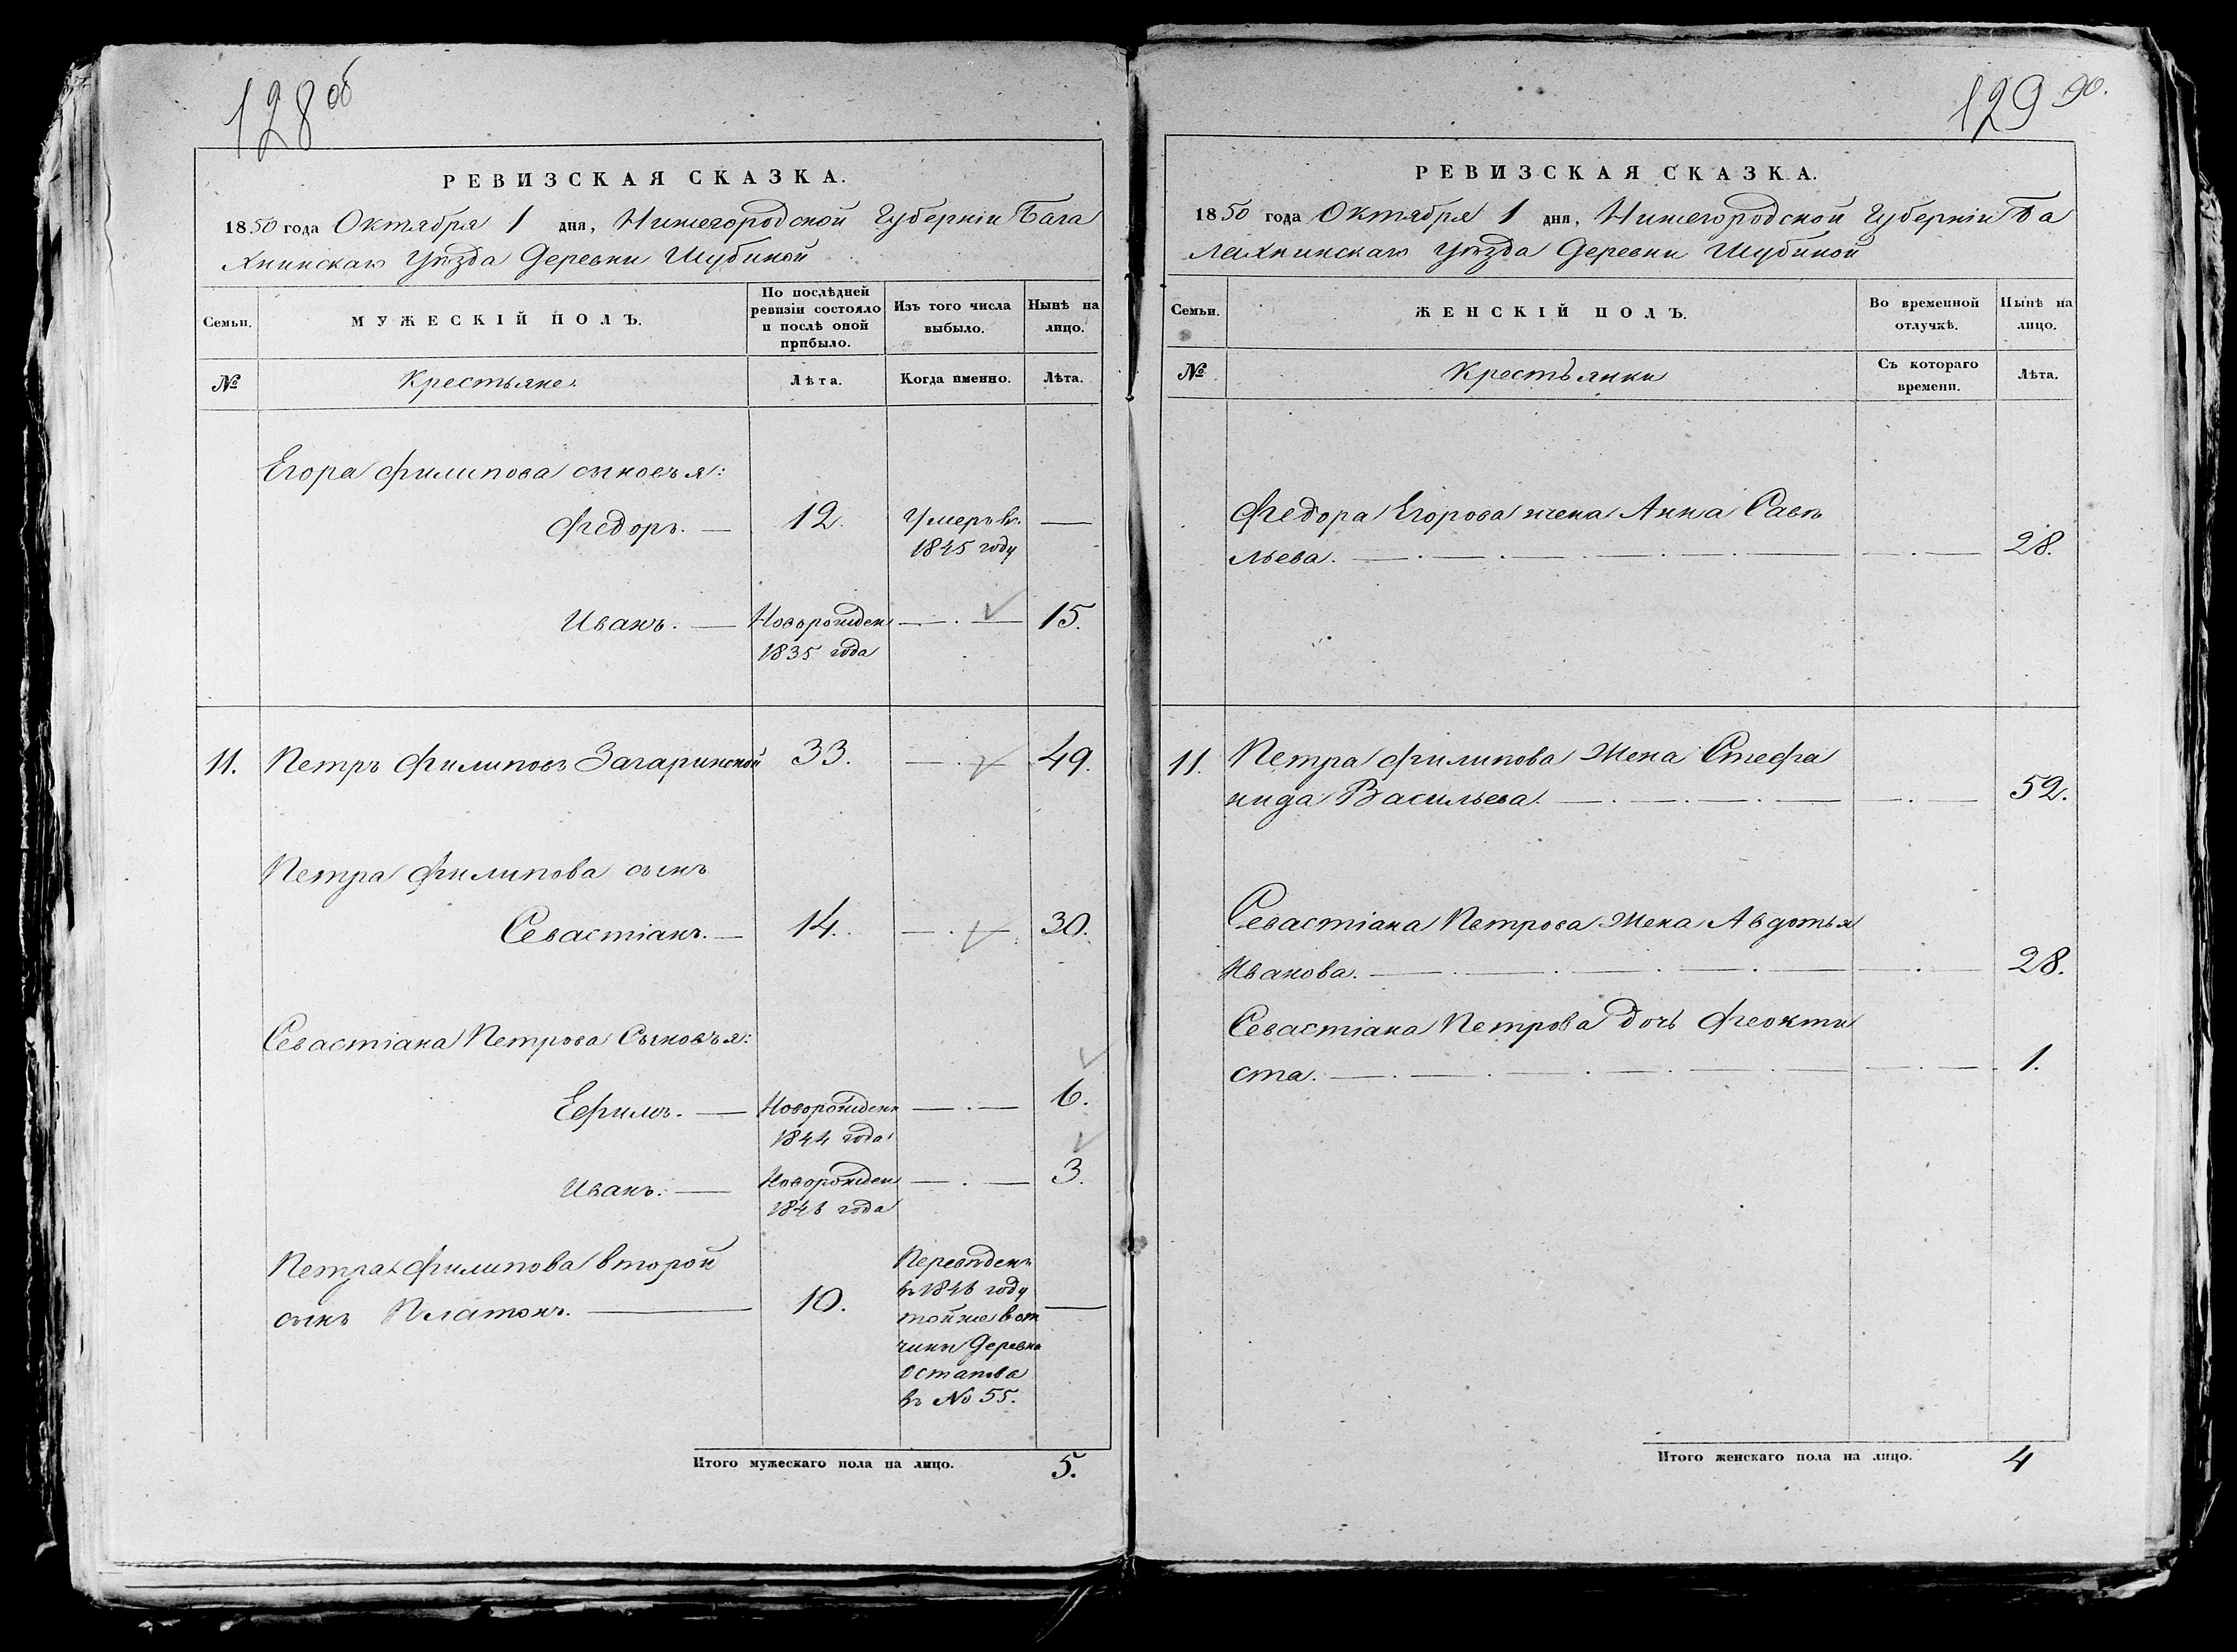 128 об
РЕВИЗСКАЯ СКАЗКА.
1850 года Октября 1 дня, Нижегородской Губерніи Бала
хнинскаго Уѣзда Деревни Шубиной
Семьи.
МУЖЕСКІЙ ПОЛЪ.
По послѣдней
ревизіи состояло
и послѣ оной
прибыло.
Изъ того числа
выбыло.
Нынѣ на
лицо.
№
Крестьяне.
Лѣта.
Когда именно.
Лѣта.
Егора Филипова сыновья:
Федоръ. — 12. Умеръ въ —
1845 году
Иванъ. — Новорожден — . — 15.
1835 года
11. Петръ Филиповъ Загаринской 33. — . — 49.
Петра Филипова сынъ
Севастіанъ. — 14. — . — 30.
Севастіана Петрова Сыновья:
Ефимъ. — Новорожден — . — 6.
1844 года
Иванъ. — Новорожден — . — 3.
1846 года
Петра Филипова второй
сынъ Платонъ. — 10. —
Переведенъ
въ 1846 году
той же вот
чины Деревню
Остапова
въ № 55.
Итого мужескаго пола на лицо. 5.
129 90.
РЕВИЗСКАЯ СКАЗКА.
1850 года Октября 1 дня, Нижегородской Губерніи Ба
лахнинскаго Уѣзда Деревни Шубиной
Семьи.
ЖЕНСКІЙ ПОЛЪ.
Во временной
отлучкѣ.
Нынѣ на
лицо.
№
Крестьянки
Съ котораго
времени.
Лѣта.
Федора Егорова жена Анна Саве
льева. — . — 28.
11. Петра Филипова Жена Стефа
нида Васильева. — . — 52.
Севастіана Петрова Жена Авдотья
Иванова. — . — 28.
Севастіана Петрова дочь Феокти
ста. — . — 1.
Итого женскаго пола на лицо. 4